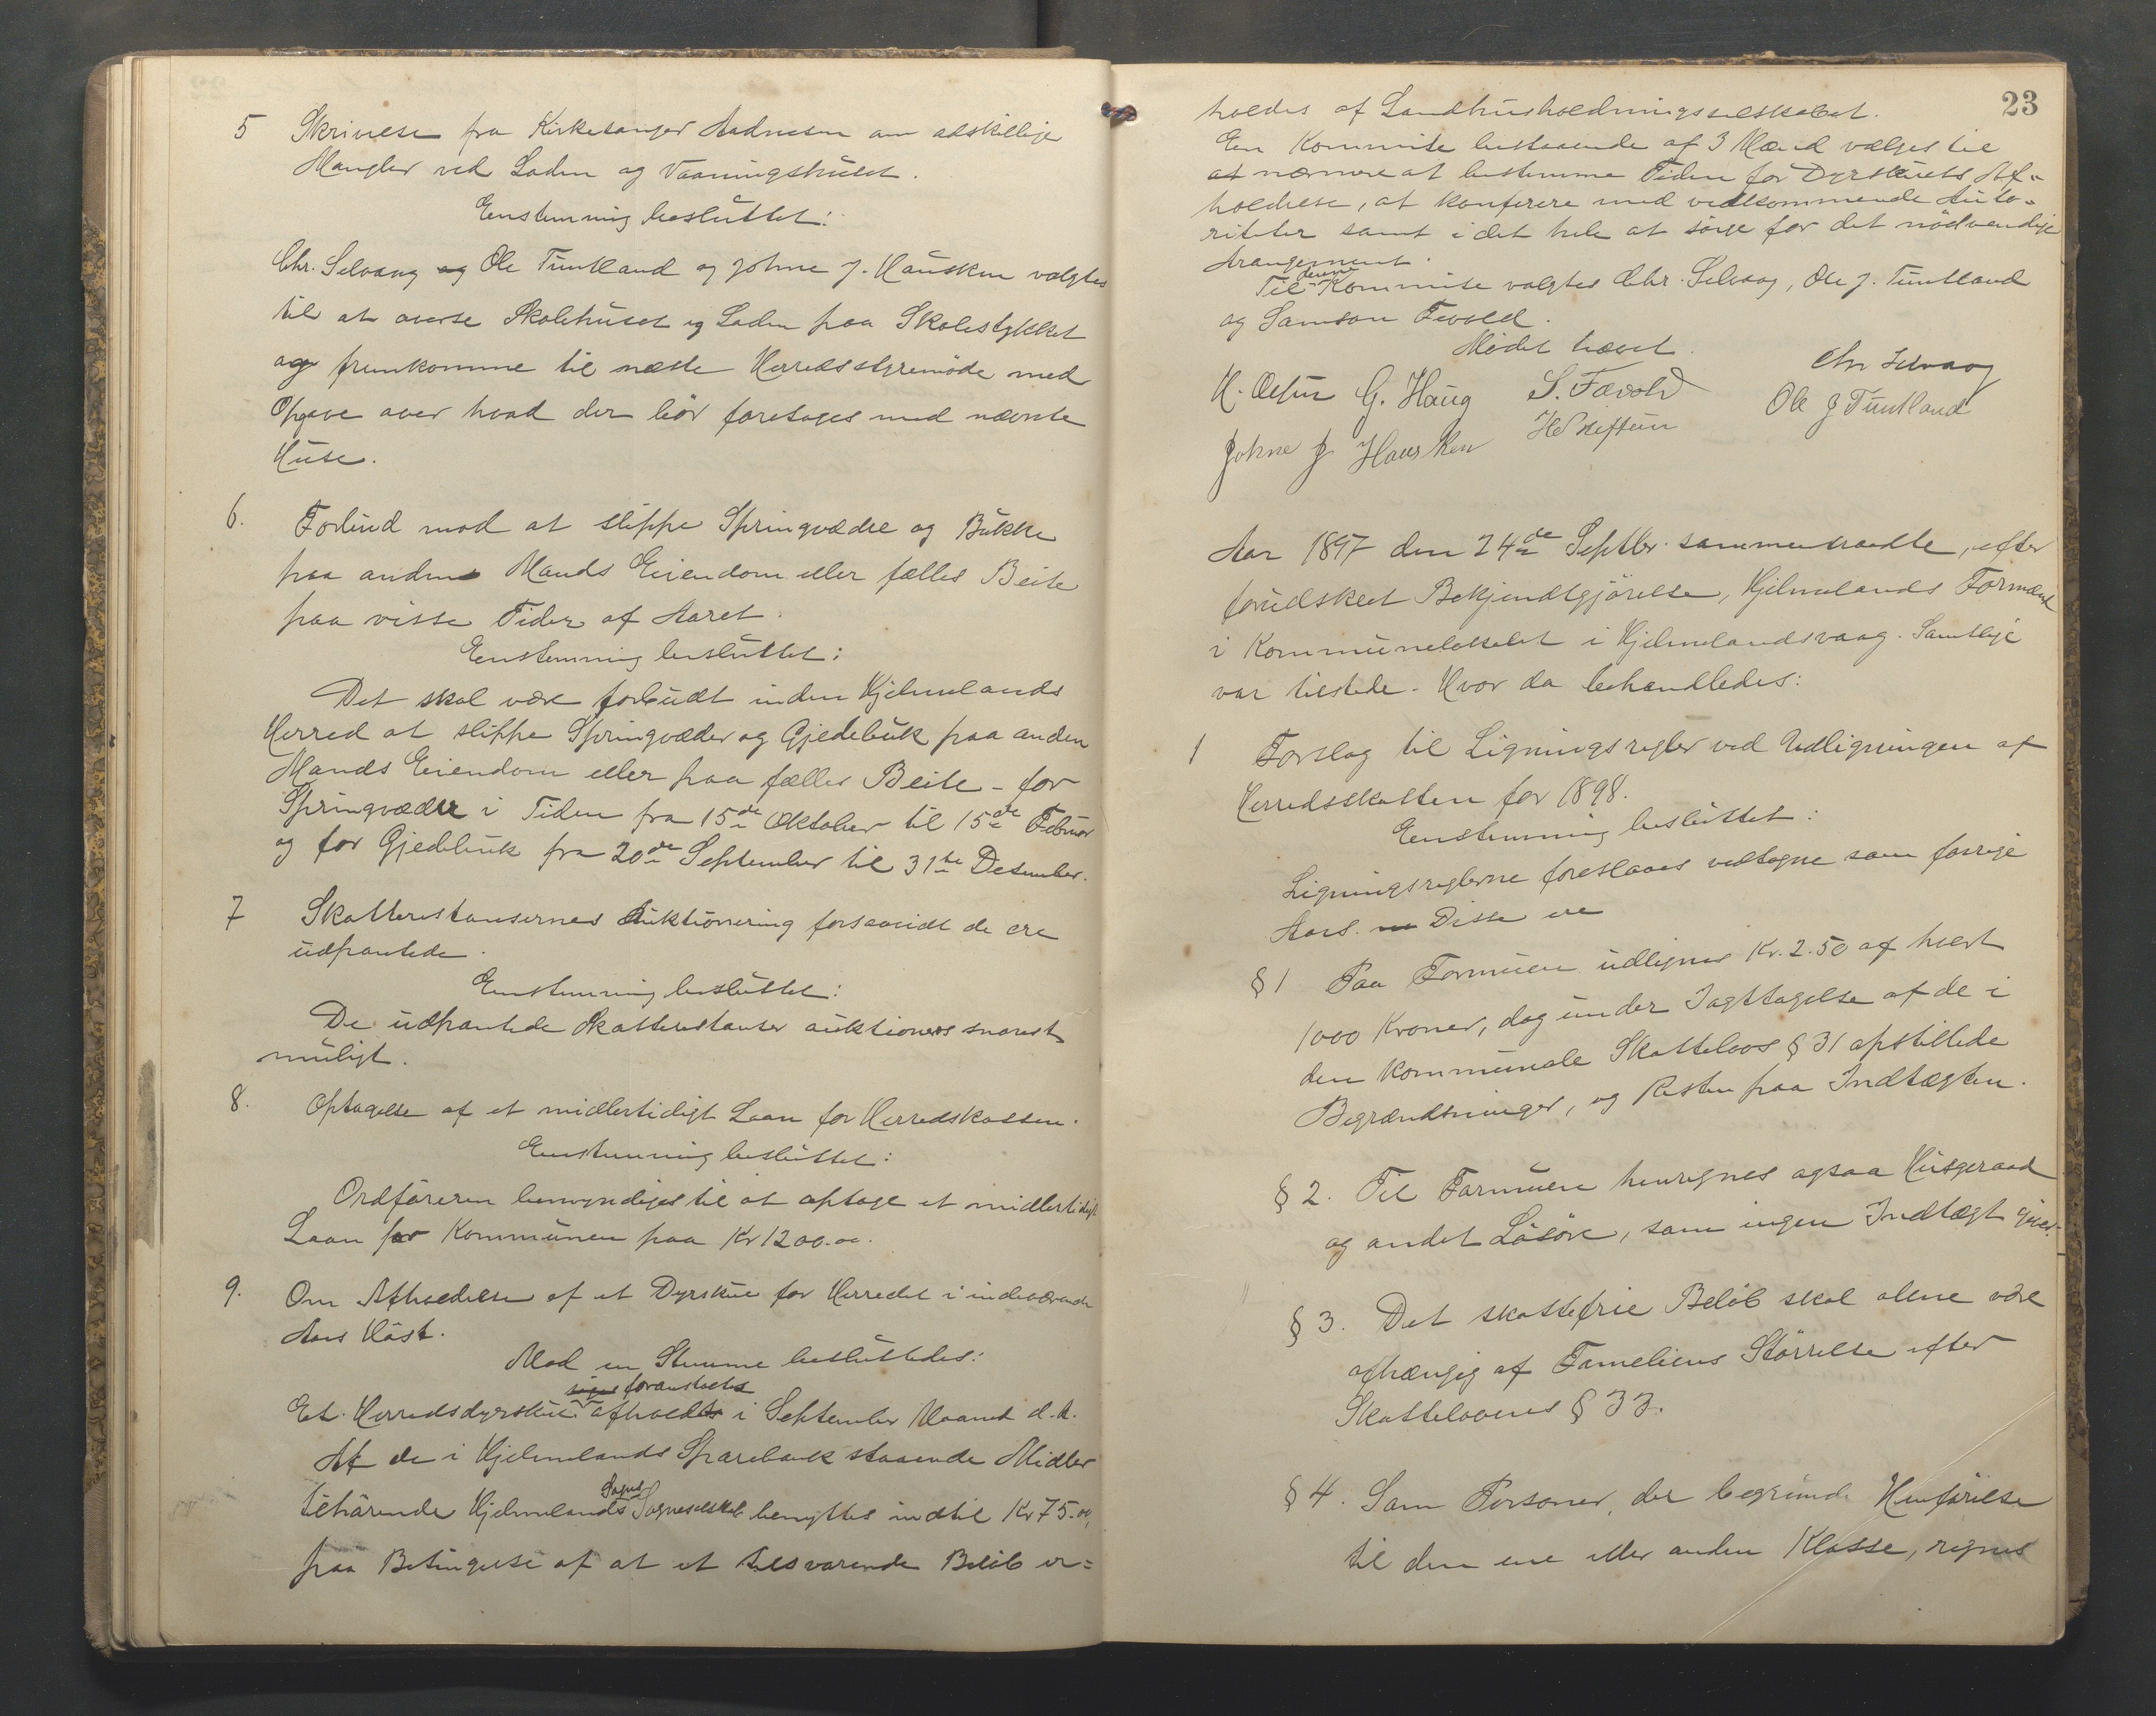 5 Skrivelse fra Kirkesanger Aadnesen om adskillige
Mangler ved Laden og Vaaningshuset.
Enstemmig besluttet:
Chr. Selvaag og Ole Tuntland og Johne J. Hausken valgtes
til at overse Skolehuset og Laden paa Skolestykket
og fremkomme til næste Herredsstyremöde med
Opgave over hvad der bör foretages med nævnte
Huse.
6. Forbud mod at slippe Springvædre og Bukke
paa anden Mands Eiendom eller fælles Beite
paa visse Tider af Aaret.
Enstemmig besluttet:
Det skal være forbudt inden Hjelmelands
Herred at slippe Springvæder og Gjedebuk paa anden
Mands Eiendom eller paa fælles Beite - for
Springvædre i Tiden fra 15de Oktober til 15de Februar
og for Gjedebuk fra 20de September til 31te Desember.
7 Skatterestansernes Auktionering forsaavidt de ere
udpantede.
Enstemmig besluttet:
De udpantede Skatterestanser auktioneres snarest
muligt.
8. Optagelse af et midlertidigt Laan for Herredskassen.
Enstemmig besluttet:
Ordföreren bemyndiges til at optage et midlertidigt
Laan for Kommunen paa Kr 1200.00.
9. Om Afholdelse af et Dyrskue for Herredet i indeværende
Aars Höst.
Mod en Stemme besluttedes:
foranstaltes
Et Herredsdyrskue afholdt i September Maaned d.A.
Af de i Hjelmelands Sparebank staaende Midler
Sogns
tilhörende Hjelmelands Sogneselskab benyttes indtil Kr 75.00,
paa Betingelse af at et tilsvarende Belöb er=
23
holdes af Landhusholdningsselskabet.
En Kommite bestaaende af 3 Mænd vælges til
at nærmere at bestemme Tiden for Dyrskuets Af-
holdelse, at konferere med vedkommende Auto-
riteter samt i det hele at sörge for det nödvendige
Arangement.
denne
Til Kommite valgtes Chr. Selvaag, Ole J. Tuntland
og Samson Fevold.
Mödet hævet.
Chr Selvaag
H. Oftun G. Haug S. Fævold
Ole J Tuntland
Johne J Hausken
Aar 1897 den 24de Septbr. sammentraadte, efter
forudskeet Bekjendtgjörelse, Hjelmelands Formænd
i Kommunelokalet i Hjelmelandsvaag. Samtlige
var tilstede. Hvor da behandledes:
1 Forslag til Ligningsregler ved Udligningen af
Herredsskatten for 1898.
Enstemmig besluttet:
Ligningsreglerne foreslaaes vedtagne som forrige
Aars. Disse ere
§ 1 Paa Formuen udlignes Kr. 2.50 af hvert
1000 Kroner, dog under Iagttagelse af de i
den kommunale Skattelovs § 31 opstillede
Begrændsninger, og Resten paa Indtægten.
§ 2. Til Formuen henregnes ogsaa Husgeraad
og andet Lösöre, som ingen Indtægt giver.
§ 3. Det skattefrie Belöb skal alene være
afhængig af Fameliens Störrelse efter
Skattelovens § 33.
§ 4. Som Personer, der begrunde Henförelse
til den ene eller anden Klasse, regnes